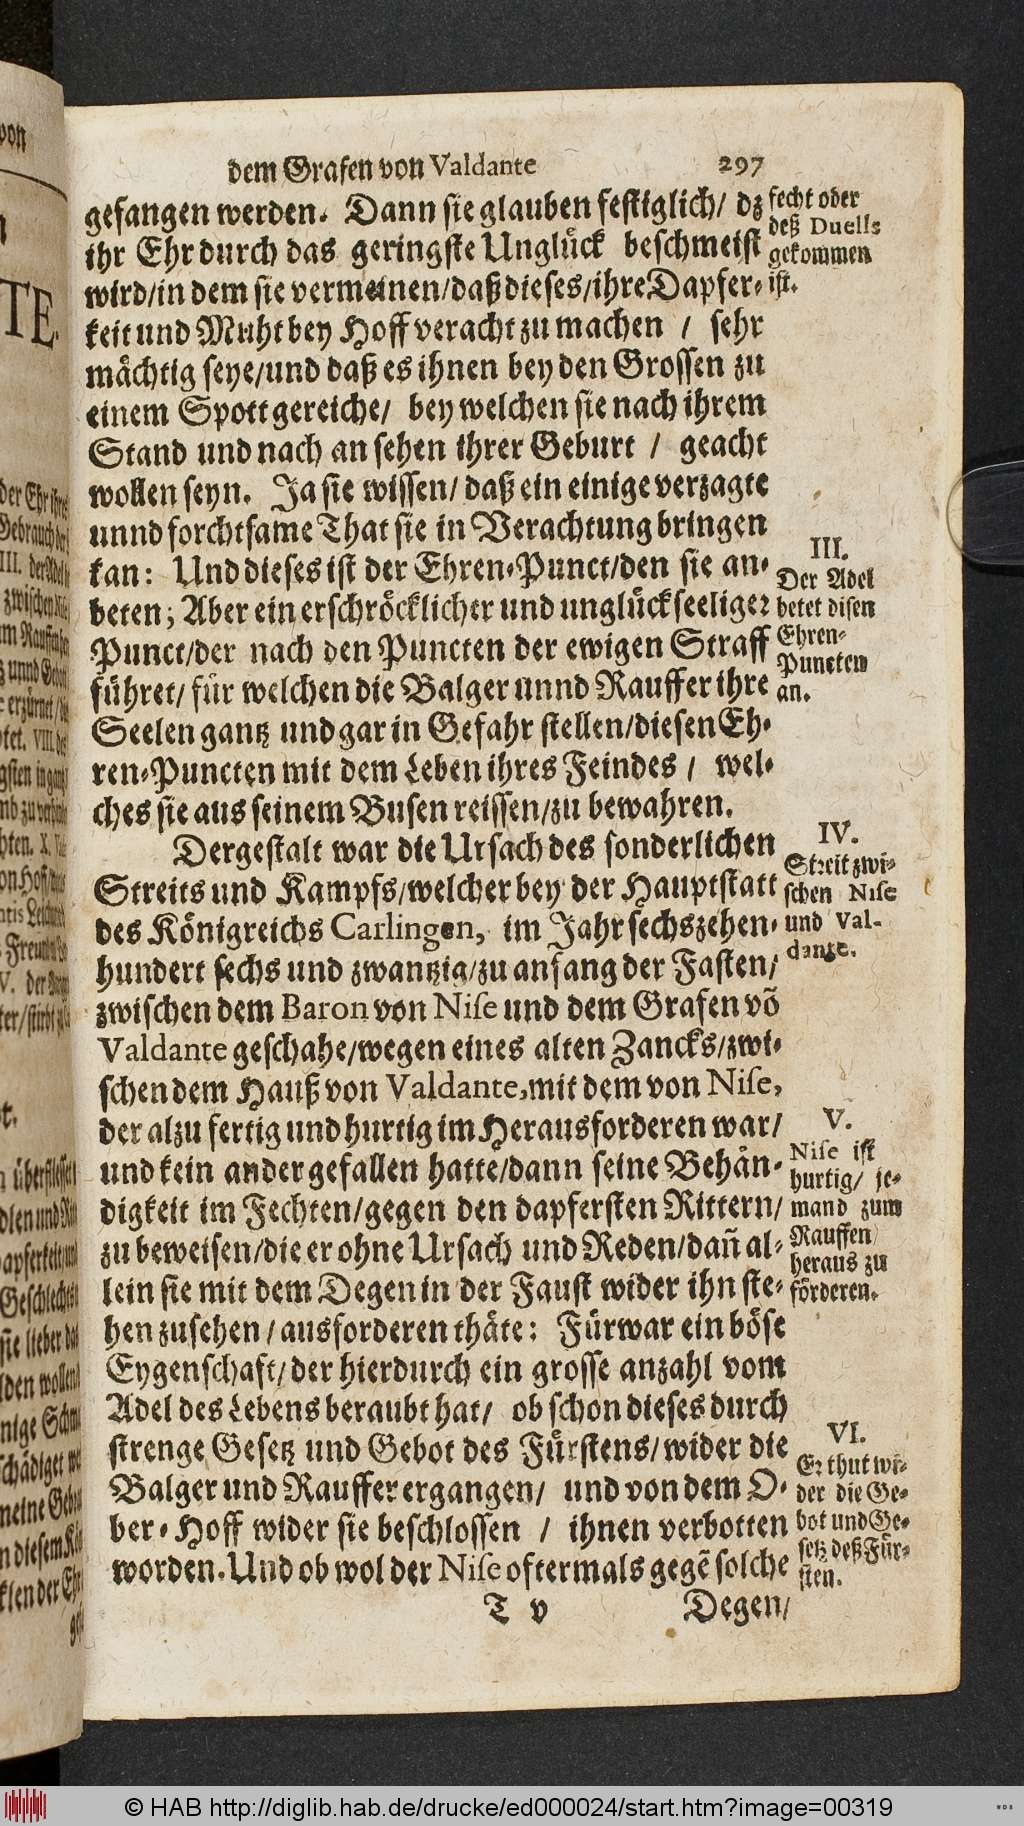 dem Grafen von Valdante 297
gefangen werden. Dann sie glauben festiglich/ dz
ihr Ehr durch das geringste Unglück beschmeist
wird/in dem sie vermeinen/daß dieses/ihre Dapfer-
keit und Muht bey Hoff veracht zu machen / sehr
mächtig seye/und daß es ihnen bey den Grossen zu
einem Spott gereiche/ bey welchen sie nach ihrem
Stand und nach an sehen ihrer Geburt / geacht
wollen seyn. Ja sie wissen/ daß ein einige verzagte
unnd forchtsame That sie in Verachtung bringen
kan: Und dieses ist der Ehren-Punct/den sie an-
beten; Aber ein erschröcklicher und unglückseeliger
Punct/der nach den Puncten der ewigen Straff
führet/ für welchen die Balger unnd Rauffer ihre
Seelen gantz und gar in Gefahr stellen/diesen Eh-
ren-Puncten mit dem Leben ihres Feindes / wel-
ches sie aus seinem Busen reissen/zu bewahren.
Dergestalt war die Ursach des sonderlichen
Streits und Kampfs/welcher bey der Hauptstatt
des Königreichs Carlingen, im Jahr sechszehen-
hundert sechs und zwantzig/zu anfang der Fasten/
zwischen dem Baron von Nise und dem Grafen võ
Valdante geschahe/wegen eines alten Zancks/zwi-
schen dem Hauß von Valdante, mit dem von Nise,
der alzu fertig und hurtig im Herausforderen war/
und kein ander gefallen hatte/dann seine Behän-
digkeit im Fechten/gegen den dapfersten Rittern/
zu beweisen/die er ohne Ursach und Reden/dañ al-
lein sie mit dem Degen in der Faust wider ihn ste-
hen zusehen/ausforderen thäte: Fürwar ein böse
Eygenschaft/der hierdurch ein grosse anzahl vom
Adel des Lebens beraubt hat/ ob schon dieses durch
strenge Gesetz und Gebot des Fürstens/wider die
Balger und Rauffer ergangen/ und von dem O-
ber-Hoff wider sie beschlossen / ihnen verbotten
worden. Und ob wol der Nise oftermals gegẽ solche
T v Degen/
fecht oder
deß Duells
gekommen
ist.
III.
Der Adel
betet disen
Ehren-
Puncten
an.
IV.
Streit zwi-
schen Nise
und Val-
dante.
V.
Nise ist
hurtig/ je-
mand zum
Rauffen
heraus zu
förderen.
VI.
Er thut wi-
der die Ge-
bot und Ge-
setz deß Für-
sten.
© HAB http://diglib.hab.de/drucke/ed000024/start.htm?image=00319